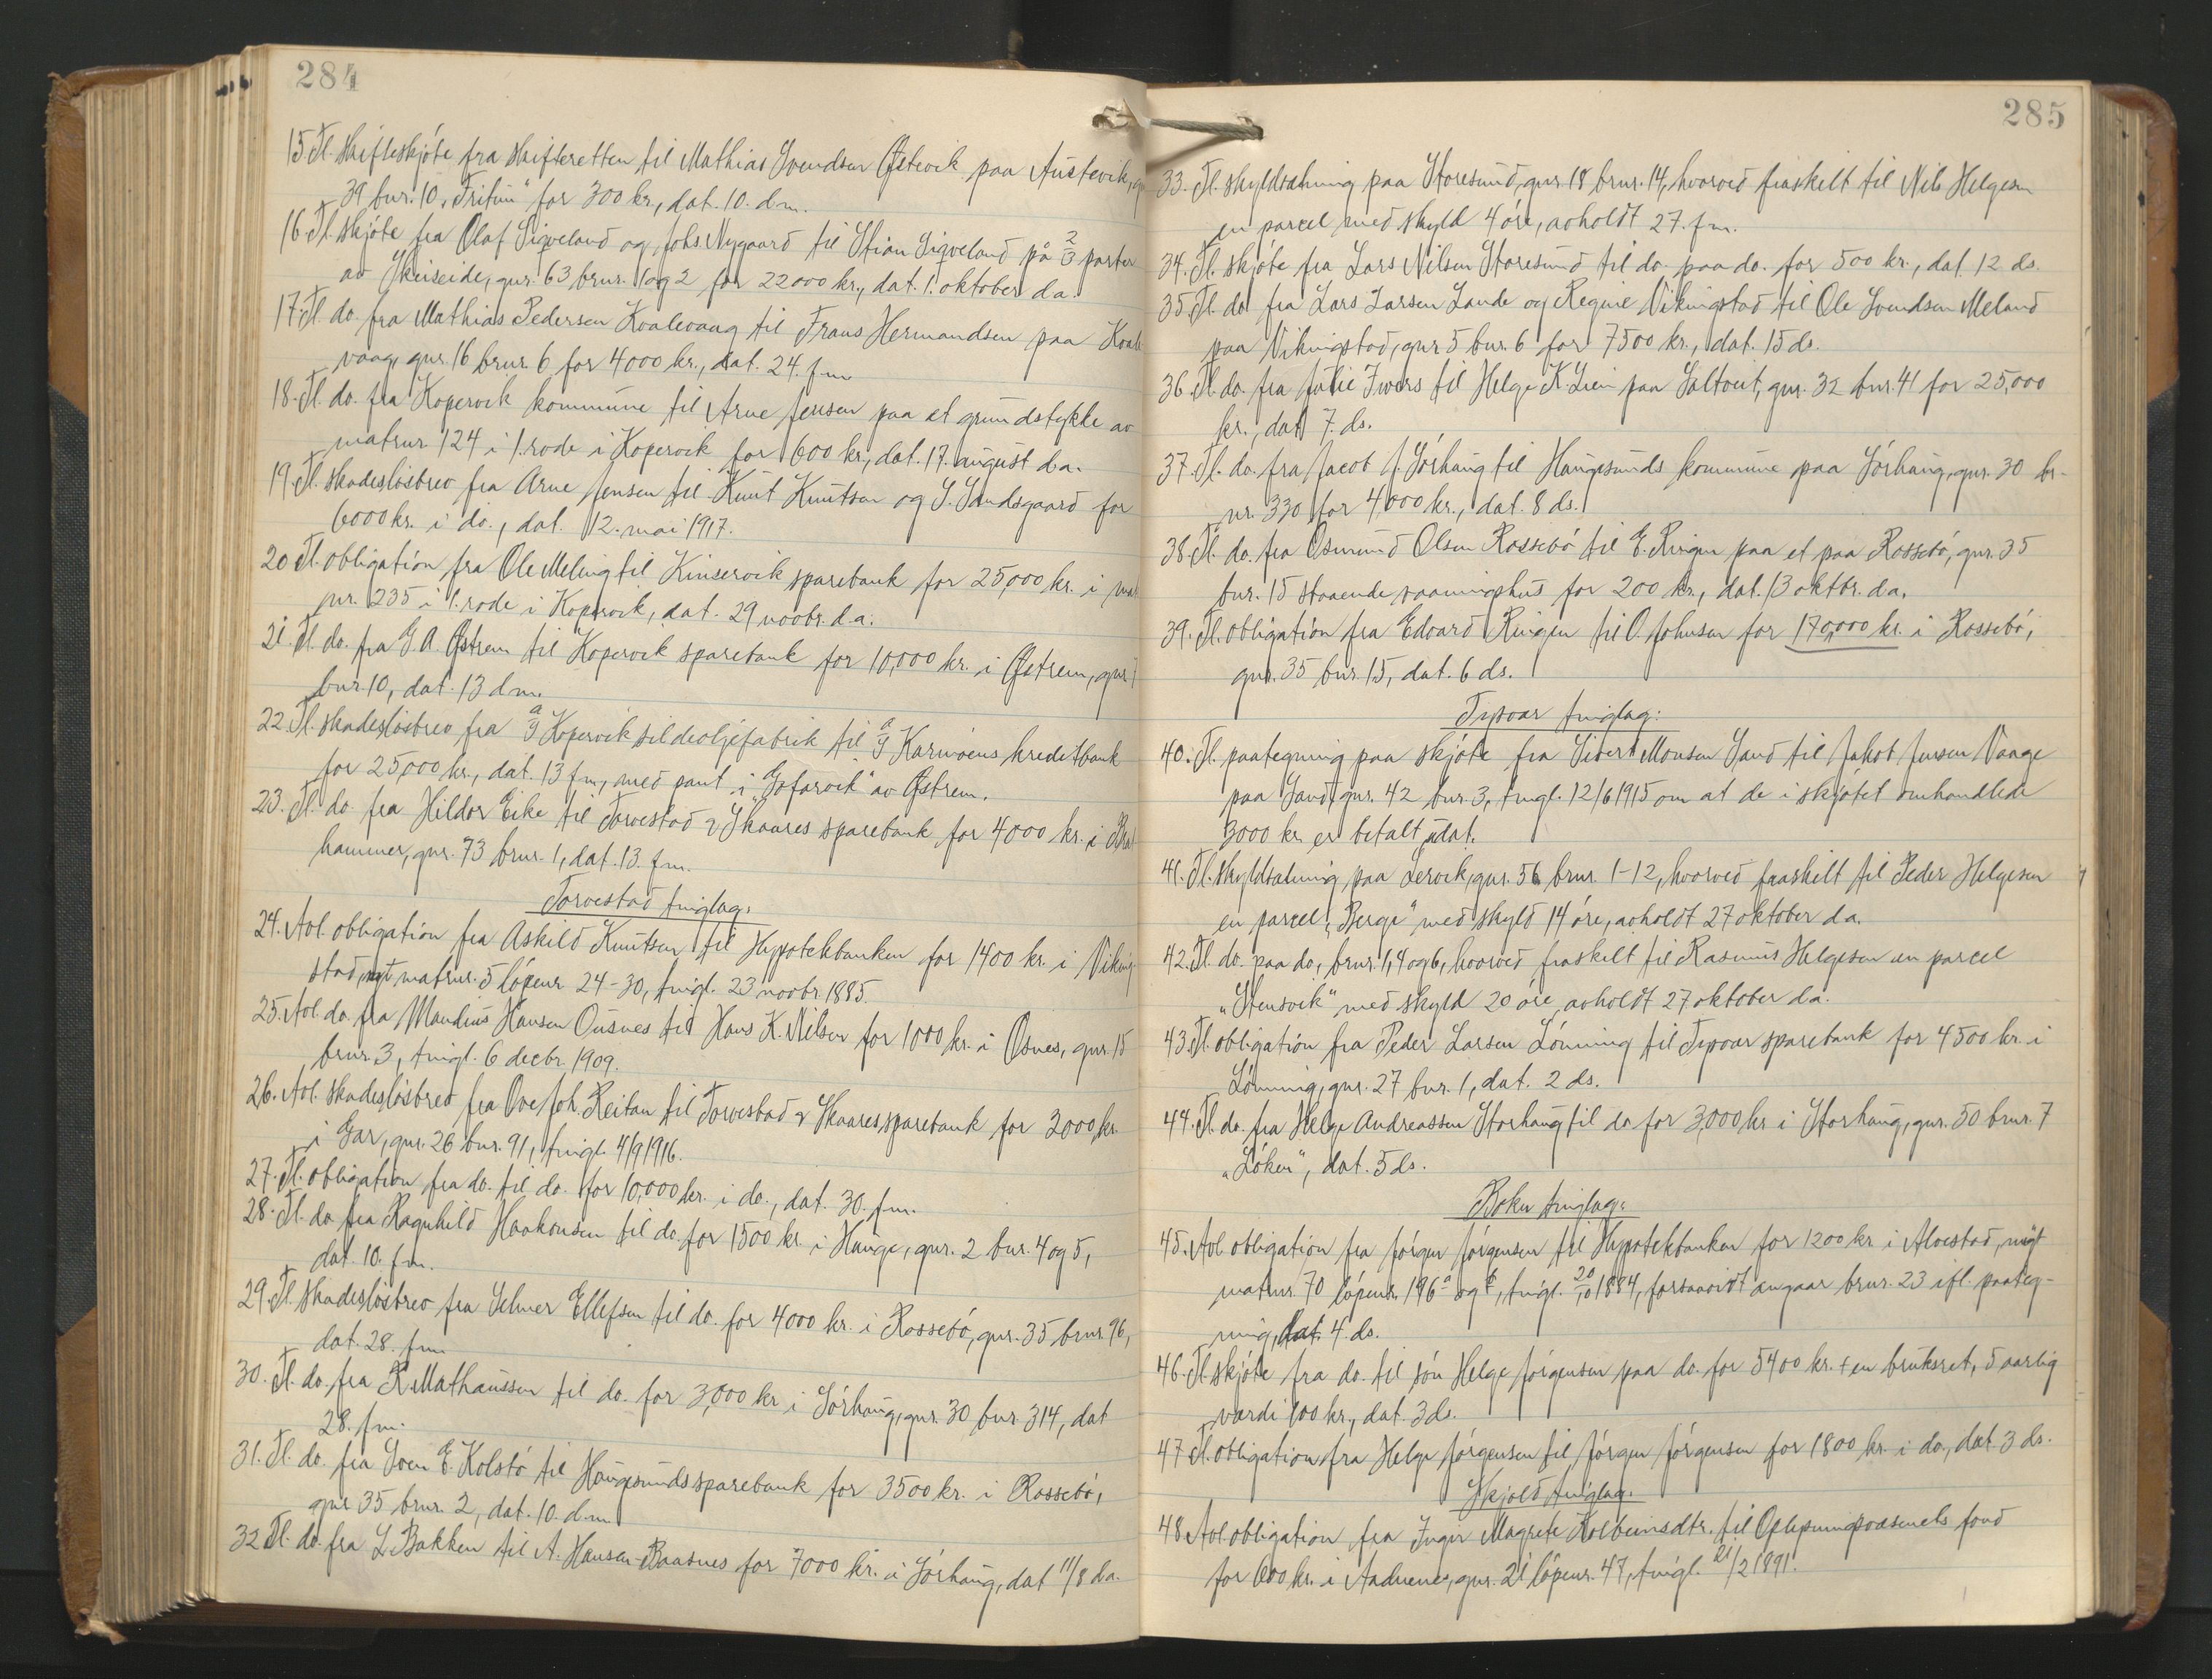 284
15 Tl. skifteskjöte fra skifteretten til Mathias Svendsen Östevik paa Austevik,
39 bnr. 10, "Tritun" for 300 kr., dat. 10. d.m.
16 Tl. skjöte fra Olaf Sigveland og Johs. Nygaard til Stian Sigveland på 2/3 parter
av Skeiseide, gnr. 63 brnr. 1 og 2 for 22000 kr., dat. 1. oktober d.a.
17. Tl. do. fra Mathias Pedersen Kvalevaag til Frans Hermandsen paa Kvale
vaag, gnr. 16 brnr. 6 for 4000 kr., dat. 24. f.m.
18. Tl. do. fra Kopervik kommune til Arne Jensen paa et grundstykke av
matrnr. 124 i 1. rode i Kopervik for 600 kr., dat. 17. august d.a.
19. Tl. skadeslösbrev fra Arne Jensen til Knut Knutsen og S. Sandsgaard for
6000 kr. i do., dat. 12. mai 1917.
20 Tl. obligation fra Ole Meling til Kinservik sparebank for 25,000 kr. i
nr. 235 i 1. rode i Kopervik, dat. 29 novbr. d.a.
21. Tl. do. fra G. A. Östrem til Kopervik sparebank for 10,000 kr. i Östrem, gnr.
bnr. 10, dat. 13 d.m.
22. Tl. skadeslösbrev fra a/s Kopervik sildeoljefabrik til a/s Karmöens kreditbank
for 25,000 kr., dat. 13 f.m., med pant i "Gofarvik" av Östrem.
23. Tl. do. fra Hildor Eike til Torvestad & Skaares sparebank for 4000 kr. i
hammer, gnr. 73 brnr. 1, dat. 13. f.m.
Torvestad tinglag:
24. Avl. obligation fra Askild Knutsen til Hypotekbanken for 1400 kr. i Viking-
stad, nyt matrnr. 5 löpenr 24-30, tingl. 23 novbr 1885.
25. Avl. do. fra Mandius Hansen Ousnes til Hans K. Nilsen for 1000 kr. i Osnes, gnr. 15
brnr. 3, tingl. 6 decbr. 1909.
26. Avl. skadeslösbrev fra Ove Joh. Reitan til Torvestad & Skaares sparebank for 3000 kr.
i Gar, gnr. 26 bnr. 91, tingl. 4/9 1916.
27. Tl. obligation fra do. til do. for 10,000 kr. i do., dat. 30. f.m.
28. Tl. do. fra Ragnhild Haakonsen til do. for 1500 kr. i Hauge, gnr. 2 bnr. 4 og 5,
dat. 10. f.m.
29. Tl. skadeslösbrev fra Selmer Ellefsen til do. for 4000 kr. i Rossebö, gnr. 35 brnr. 96,
dat. 28. f.m.
30. Tl. do. fra R. Mathaussen til do. for 3,000 kr. i Sörhaug, gnr. 30 bnr. 314, dat
28. f.m.
31. Tl. do. fra Sven E. Kolstö til Haugesunds sparebank for 3500 kr. i Rossebö,
gnr 35 brnr. 2, dat. 10. d.m.
32 Tl. do. fra L. Bakken til A. Hansen Baasnes for 7000 kr. i Sörhaug, dat 11/8 d.a.
285
33. Tl. skyldsætning paa Storesund, gnr. 18 brnr. 14, hvorved fraskilt til Nils Helgesen
en parcel med skyld 4 öre, avholdt 27. f.m.
34. Tl. skjöte fra Lars Nilsen Storesund til do. paa do. for 500 kr., dat. 12 ds.
35. Tl. do fra Lars Larsen Lande og Regine Vikingstad til Ole Svendsen Meland
paa Vikingstad, gnr 5 bnr. 6 for 7500 kr., dat. 15 ds.
36. Tl. do. fra Julie Iwers til Helge K. Lien paa Saltveit, gnr. 32 bnr. 41 for 25,000
kr., dat 7. ds.
37. Tl. do. fra Jacob J. Sörhaug til Haugesunds kommune paa Sörhaug, gnr. 30 br-
nr. 330 for 4000 kr., dat. 8 ds.
38. Tl. do. fra Osmund Olsen Rossebö til E. Ringen paa et paa Rossebö, gnr. 35
bnr. 15 staaende vaaningshus for 200 kr., dat. 13 oktbr. d.a.
39. Tl. obligation fra Edvard Ringen til O. Johnsen for 170,000 kr. i Rossebö,
gnr. 35 bnr. 15, dat. 6 ds.
Tysvær tinglag:
40. Tl. paategning paa skjöte fra Sivert Monsen Sand til Jakob Jensen Vaage
paa Sand, gnr. 42 bnr. 3, tingl. 12/6 1915 om at de i skjötet omhandlede
3000 kr. er betalt, udat.
41. Tl. skyldsætning paa Lervik, gnr. 56 brnr. 1-12, hvorved fraskilt til Peder Helgesen
en parcel "Berge" med skyld 14 öre, avholdt 27 oktober d.a.
42. Tl. do. paa do, brnr. 1, 4 og 6, hvorved fraskilt til Rasmus Helgesen en parcel
"Stensvik" med skyld 20 öre, avholdt 27 oktober d.a.
43. Tl. obligation fra Peder Larsen Lönning til Tysvær sparebank for 4500 kr. i
Lönning, gnr. 27 bnr. 1, dat. 2 ds.
44. Tl. do. fra Helge Andreassen Storhaug til do for 3,000 kr i Storhaug, gnr. 50 brnr. 7
"Löken", dat. 5 ds.
Bokn tinglag:
45. Avl. obligation fra Jörgen Jörgensen til Hypotekbanken for 1200 kr i Alvestad, nyt
matrnr. 70 löpenr. 196 a og b, tingl. 20/10 1884, forsaavidt angaar brnr. 23 ifl. paateg-
ning, dat. 4. ds.
46. Tl. skjöte fra do. til sön Helge Jörgensen paa do. for 5400 kr. + en bruksret, 5 aarlig
værdi 100 kr., dat. 3 ds.
47 Tl. obligation fra Helge Jörgensen til Jörgen Jörgensen for 1800 kr. i do., dat. 3 ds.
Skjold tinglag:
48 Avl. obligation fra Inger Magrete Kolbeinsdtr. til Oplysningsvæsenets fond
for 600 kr. i gnr. 21 löpenr. 47, tingl. 21/2 1891.